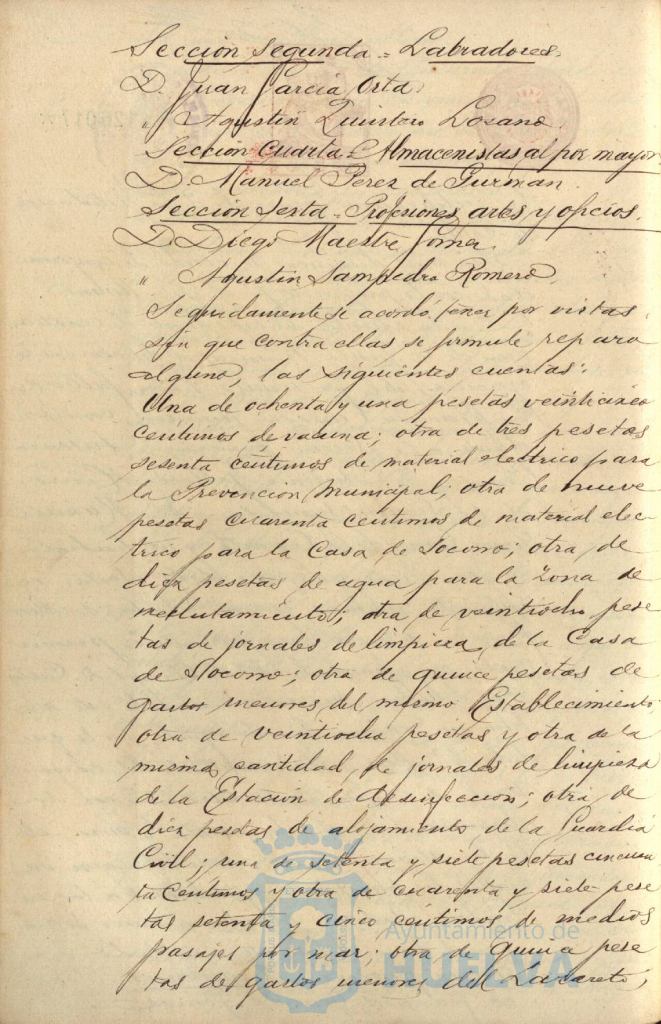 Sección Segunda = Labradores =
D. Juan García Orta.
" Agustín Quintero Lozano.
Sección Cuarta = Almacenistas al por mayor
D. Manuel Perez de Guzman.
Sección Sexta = Profesiones, artes y oficios.
D. Diego Maestre
" Agustin Sampedro Romero.
Seguidamente se acordó, tener por vistas
sin que contra ellas se formule reparo
alguno, las siguientes cuentas:
Una de ochenta y una pesetas veinticinco
centimos de vacuna; otra de tres pesetas
sesenta centimos de material electrico para
la Prevencion Municipal; otra de nueve
pesetas cuarenta centimos de material elec-
trico para la Casa de Socorro; otra de
diez pesetas de agua para la Zona de
reclutamiento; otra de veintiocho pese
tas de jornales de limpieza de la Casa
de Socorro; otra de quince pesetas de
gastos menores del mismo Establecimiento;
otra de veintiocho pesetas y otra de la
misma cantidad, de jornales de limpieza
de la Estación de desinfeccion; otra de
diez pesetas de alojamiento de la Guardia
Civil; una de setenta y siete pesetas cincuen
ta centimos y otra de cuarenta y siete pese
tas setenta y cinco centimos de medios
pasajes por mar; otra de quince pese
tas de gastos menores del Lazareto;
Ayuntamiento de
HUELVA